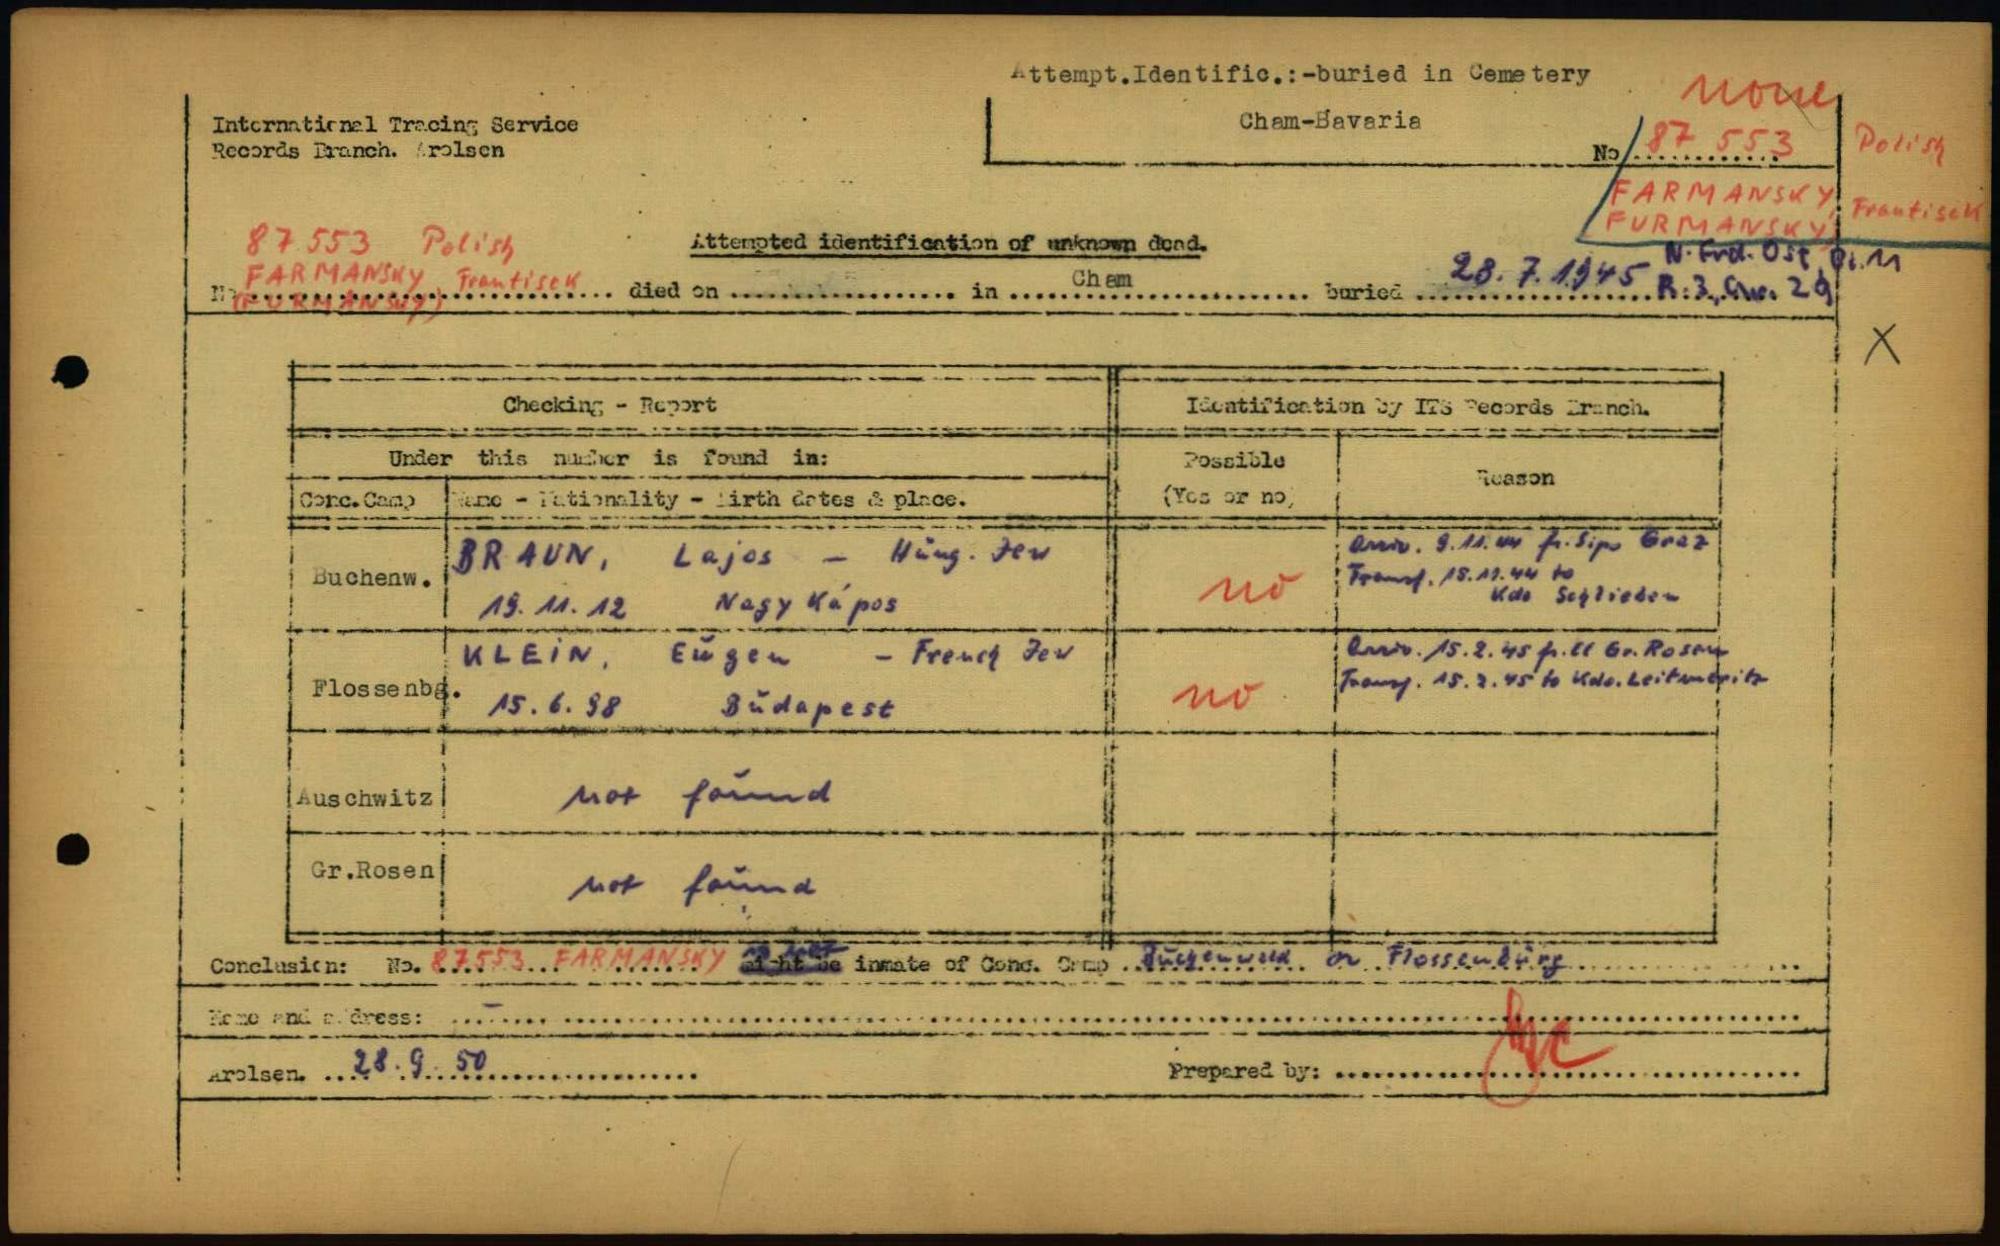 Attempt.Identific.:-buried in Cemetery
Cham-Bavaria
none
International Tracing Service
Records Branch. Arolsen
No 87 553 Polish
FARMANSKY, Frantisek
FURMANSKY
87 553 Polish
Attempted identification of unknown dead.
No FARMANSKY Frantisek died on in Cham buried 28.7.1945
(FURMANSKY)
N. Frd. Ost, Pl. 11
R. 3, Gr. 29
X
Checking - Report
Identification by ITS Records Branch.
Under this number is found in:
Possible
(Yes or no)
Reason
Conc.Camp Name - Nationality - Birth dates & place.
Buchenw. BRAUN, Lajos - Hung. Jew
19.11.12 Nagy Kápos
no
Arriv. 9.11.44 fr. Sipo Graz
Transf. 15.11.44 to
Kdo Schlieben
Flossenbg. KLEIN, Eugen - French Jew
15.6.98 Budapest
no
Arriv. 15.2.45 fr. Cc Gr. Rosen
Transf. 15.2.45 to Kdo. Leitmeritz
Auschwitz not found
Gr.Rosen not found
Conclusion: No. 87553 FARMANSKY might be inmate of Conc. Camp Buchenwald or Flossenbürg
Name and address: -
Arolsen. 28.9.50
Prepared by: